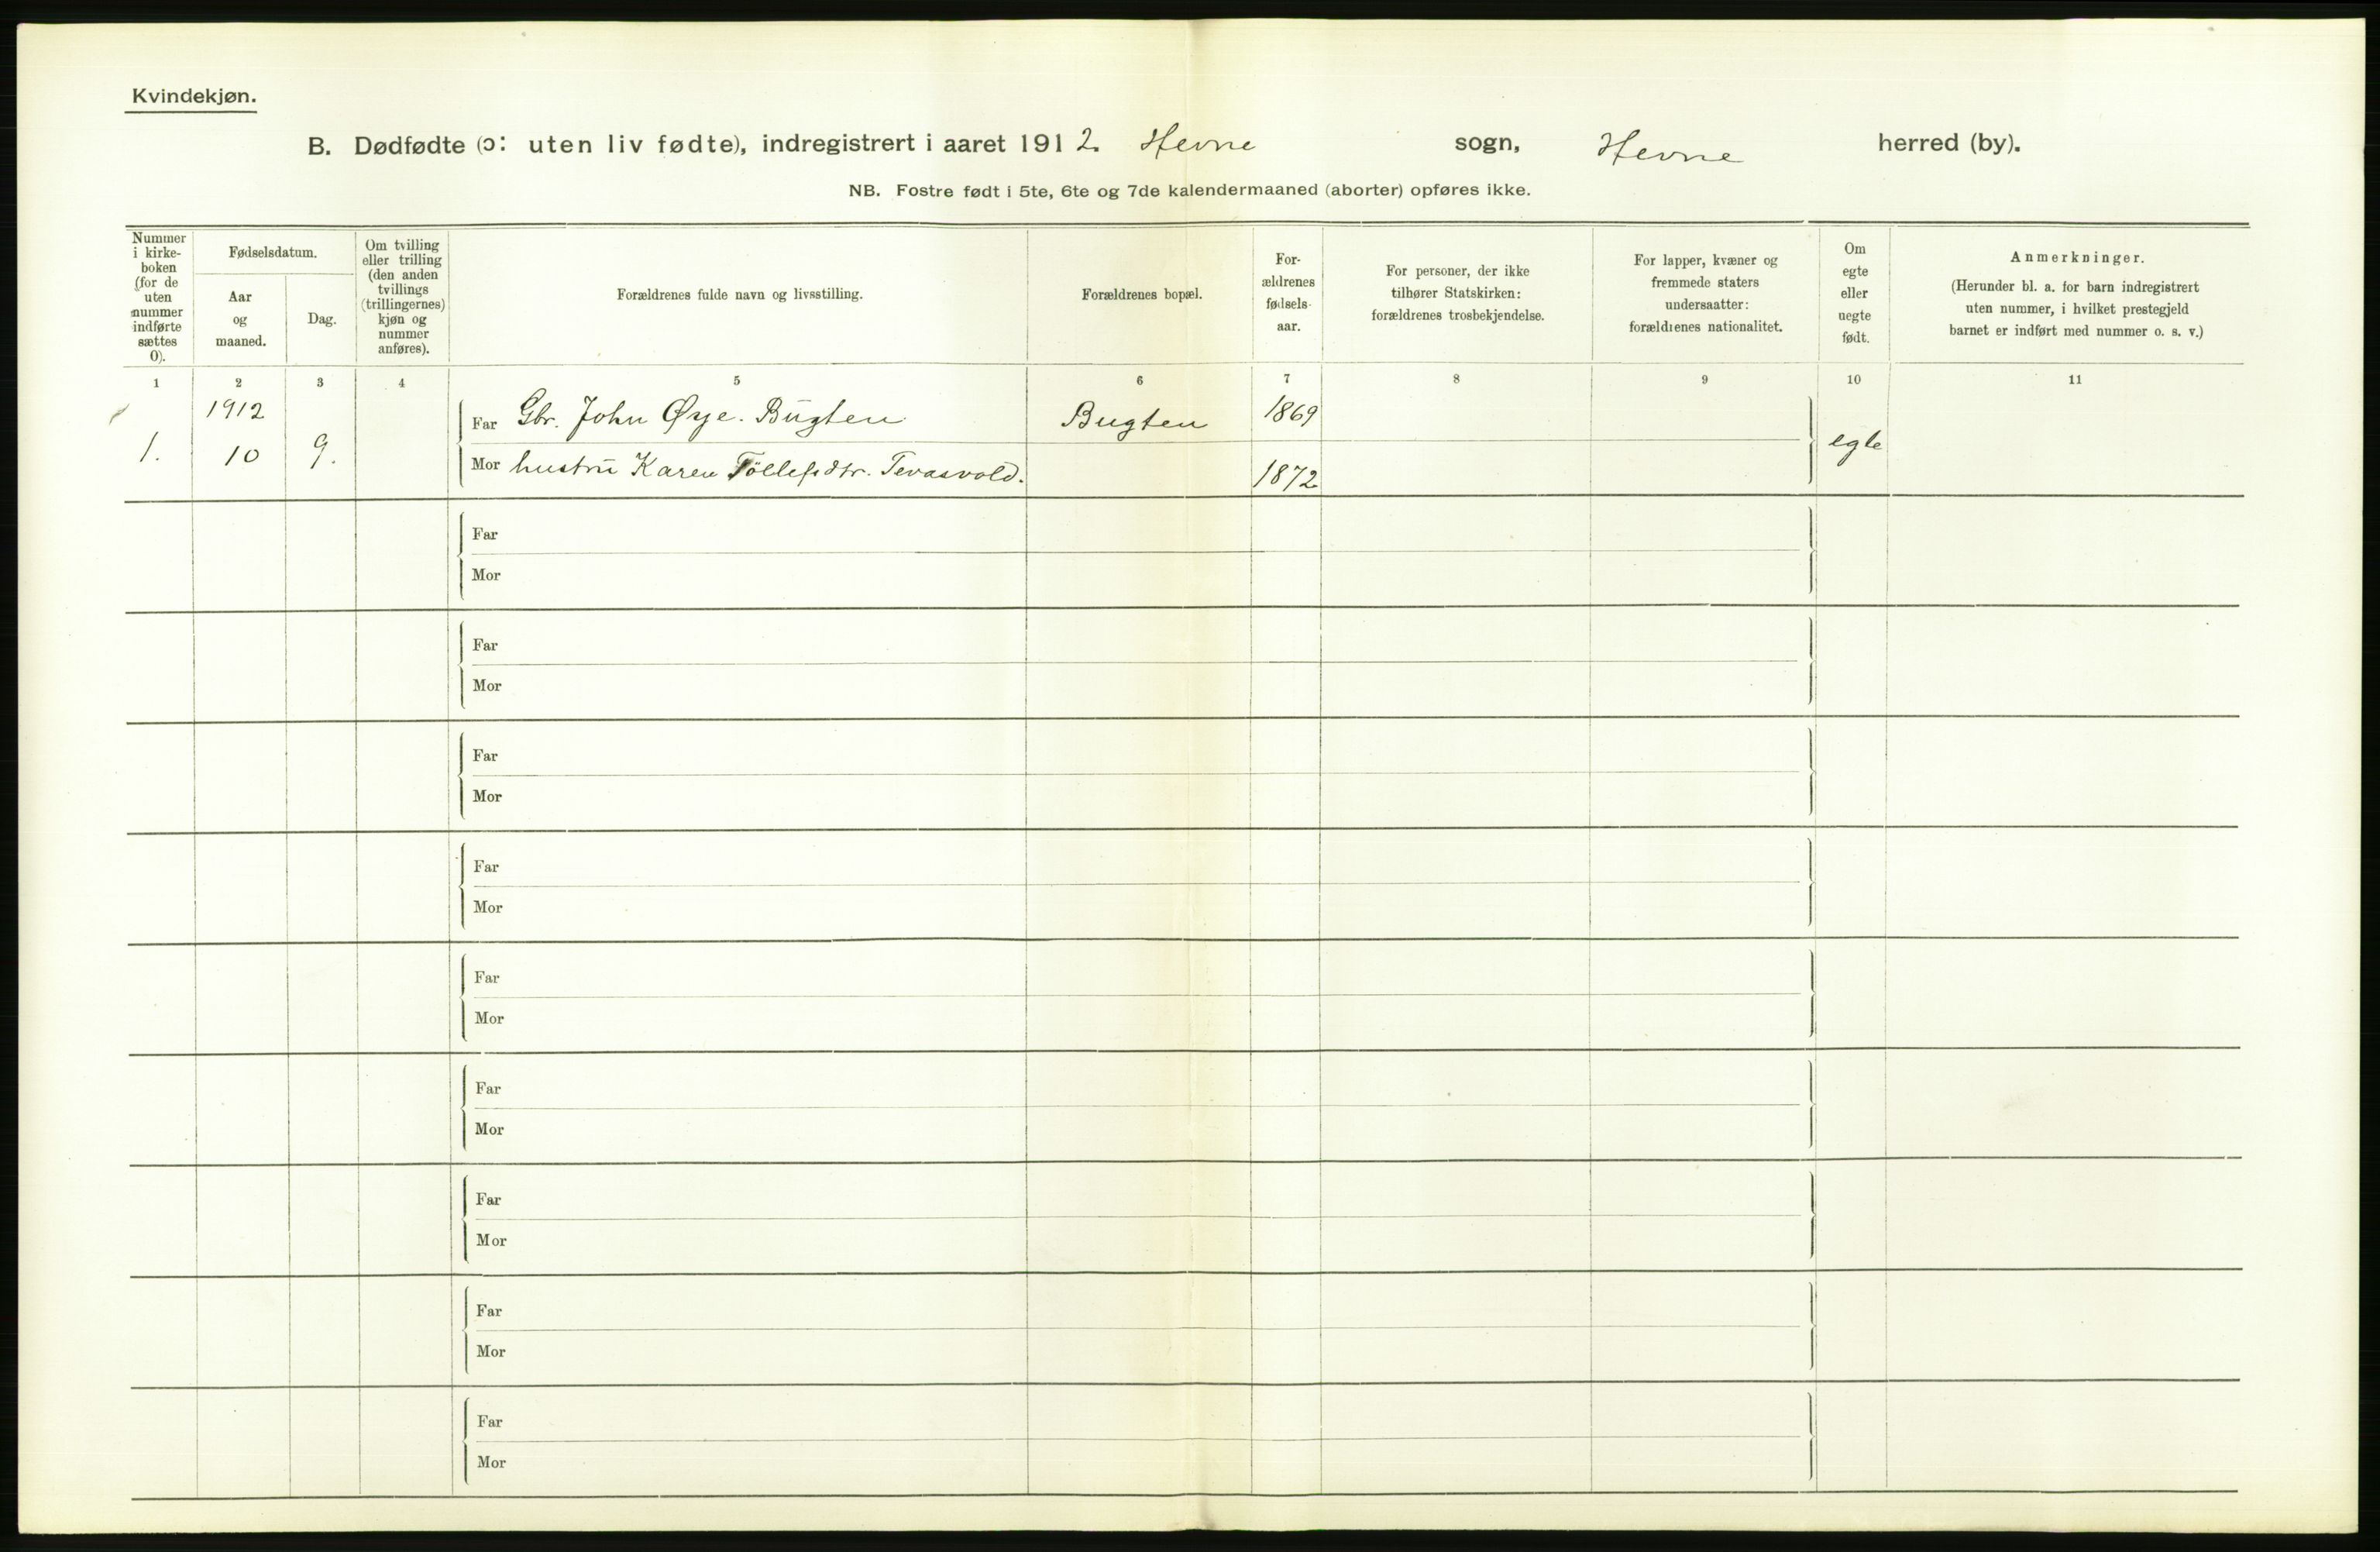 Kvindekjøn.
B. Dødfødte (ɔ: uten liv fødte), indregistrert i aaret 1912. Hevne sogn, Hevne herred (by).
NB. Fostre født i 5te, 6te og 7de kalendermaaned (aborter) opføres ikke.
Nummer
i kirke-
boken
(for de
uten
nummer
indførte
sættes
0).
Fødselsdatum.
Aar
og
maaned.
Dag.
Om tvilling
eller trilling
(den anden
tvillings
(trillingernes)
kjøn og
nummer
anføres).
Forældrenes fulde navn og livsstilling.
Forældrenes bopæl.
For-
ældrenes
fødsels-
aar.
For personer, der ikke
tilhører Statskirken:
forældrenes trosbekjendelse.
For lapper, kvæner og
fremmede staters
undersaatter:
forældrenes nationalitet.
Om
egte
eller
uegte
født.
Anmerkninger.
(Herunder bl. a. for barn indregistrert
uten nummer, i hvilket prestegjeld
barnet er indført med nummer o. s. v.)
1 2 3 4 5 6 7 8 9 10 11
1912
Far Gbr. John Øye. Bugten Bugten 1869
1. 10 9. egte
Mor hustru Karen Tøllefsdtr. Tevasvold. 1872
Far
Mor
Far
Mor
Far
Mor
Far
Mor
Far
Mor
Far
Mor
Far
Mor
Far
Mor
Far
Mor